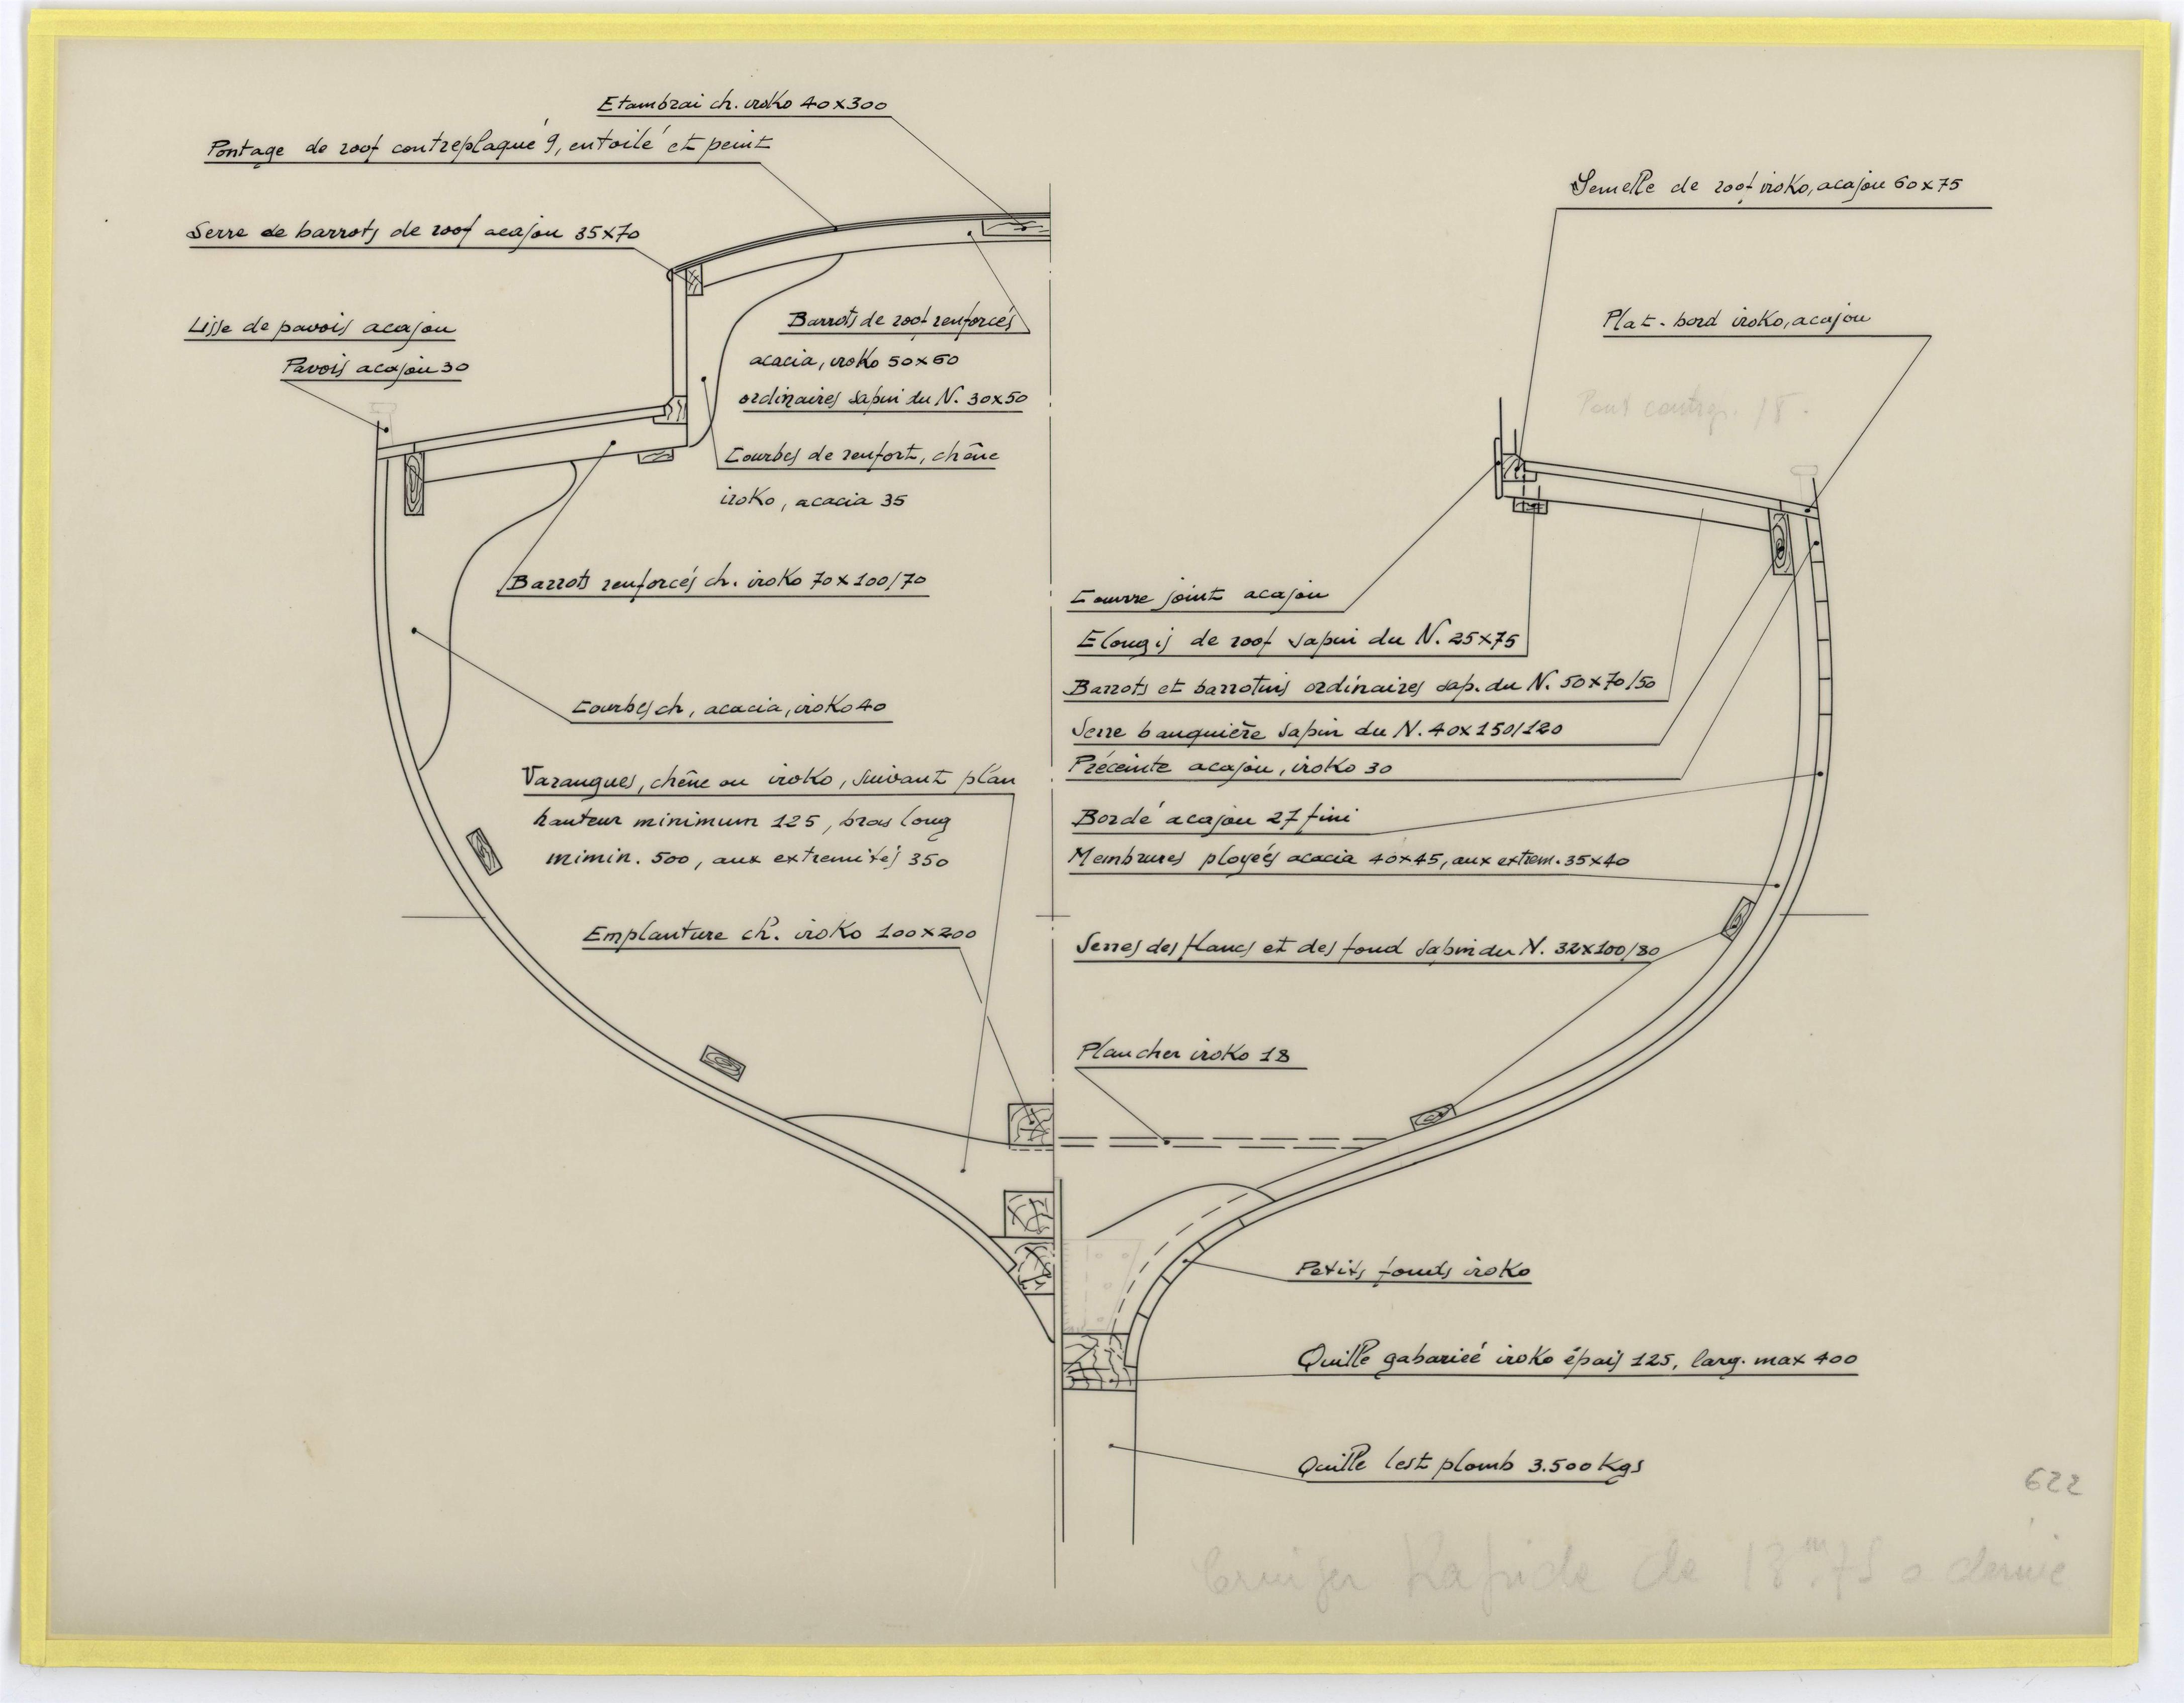 Etambrai ch. iroko 40x300
Pontage de roof contreplaqué 9, entoilé et peint
Serre de barrots de roof acajou 35x70
Lisse de pavois acajou
Pavois acajou 30
Barrots de roof renforcés
acacia, iroko 50x60
ordinaires sapin du N. 30x50
Courbes de renfort, chêne
iroko, acacia 35
Barrots renforcés ch. iroko 70x100/70
Courbes ch, acacia, iroko 40
Varangues, chêne ou iroko, suivant plan
hauteur minimum 125, bras long
mimin. 500, aux extremités 350
Emplanture ch. iroko 100x200
Semelle de roof iroko, acajou 60x75
Plat-bord iroko, acajou
Pont contrep. 18.
Couvre joint acajou
Elongis de roof sapin du N. 25x75
Barrots et barrotins ordinaires sap. du N. 50x70/50
Serre bauquière sapin du N. 40x150/120
Préceinte acajou, iroko 30
Bordé acajou 27 fini
Membrures ployeés acacia 40x45, aux extrem. 35x40
Serres des flancs et des fond sapin du N. 32x100/80
Plancher iroko 18
Petits fonds iroko
Quille gabarieé iroko épais 125, larg. max 400
Quille lest plomb 3.500 Kgs
622
Cruiser Rapide de 13m.75 a derive